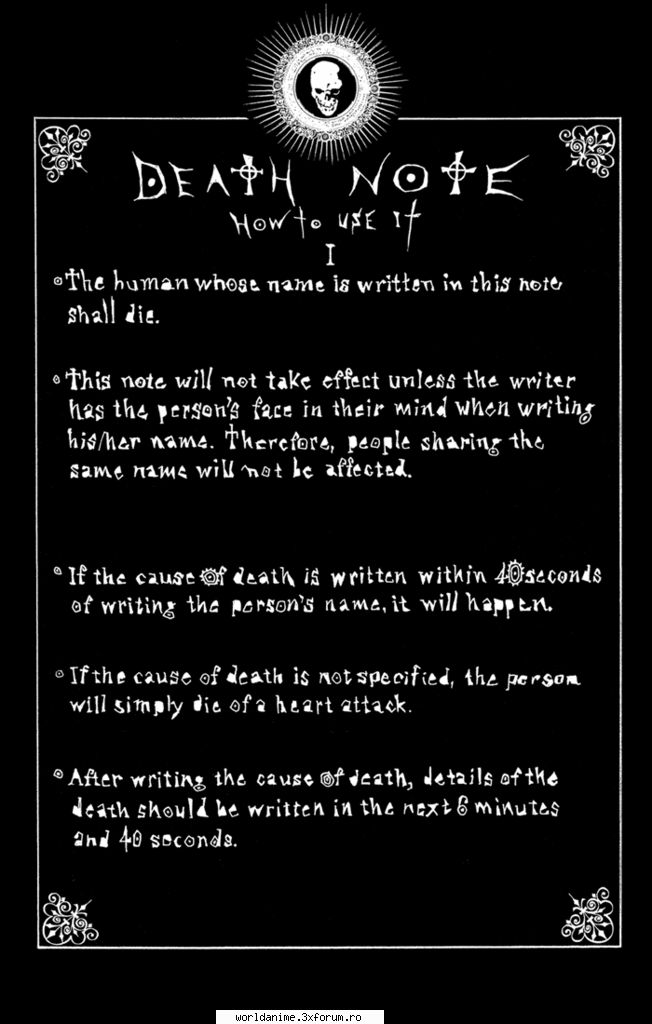 DEATH NOTE
HOW TO USE IT
I
The human whose name is written in this note
shall die.
This note will not take effect unless the writer
has the person's face in their mind when writing
his/her name. Therefore, people sharing the
same name will not be affected.
If the cause of death is written within 40seconds
of writing the person's name, it will happen.
If the cause of death is not specified, the person
will simply die of a heart attack.
After writing the cause of death, details of the
death should be written in the next 6 minutes
and 40 seconds.
worldanime.3xforum.ro